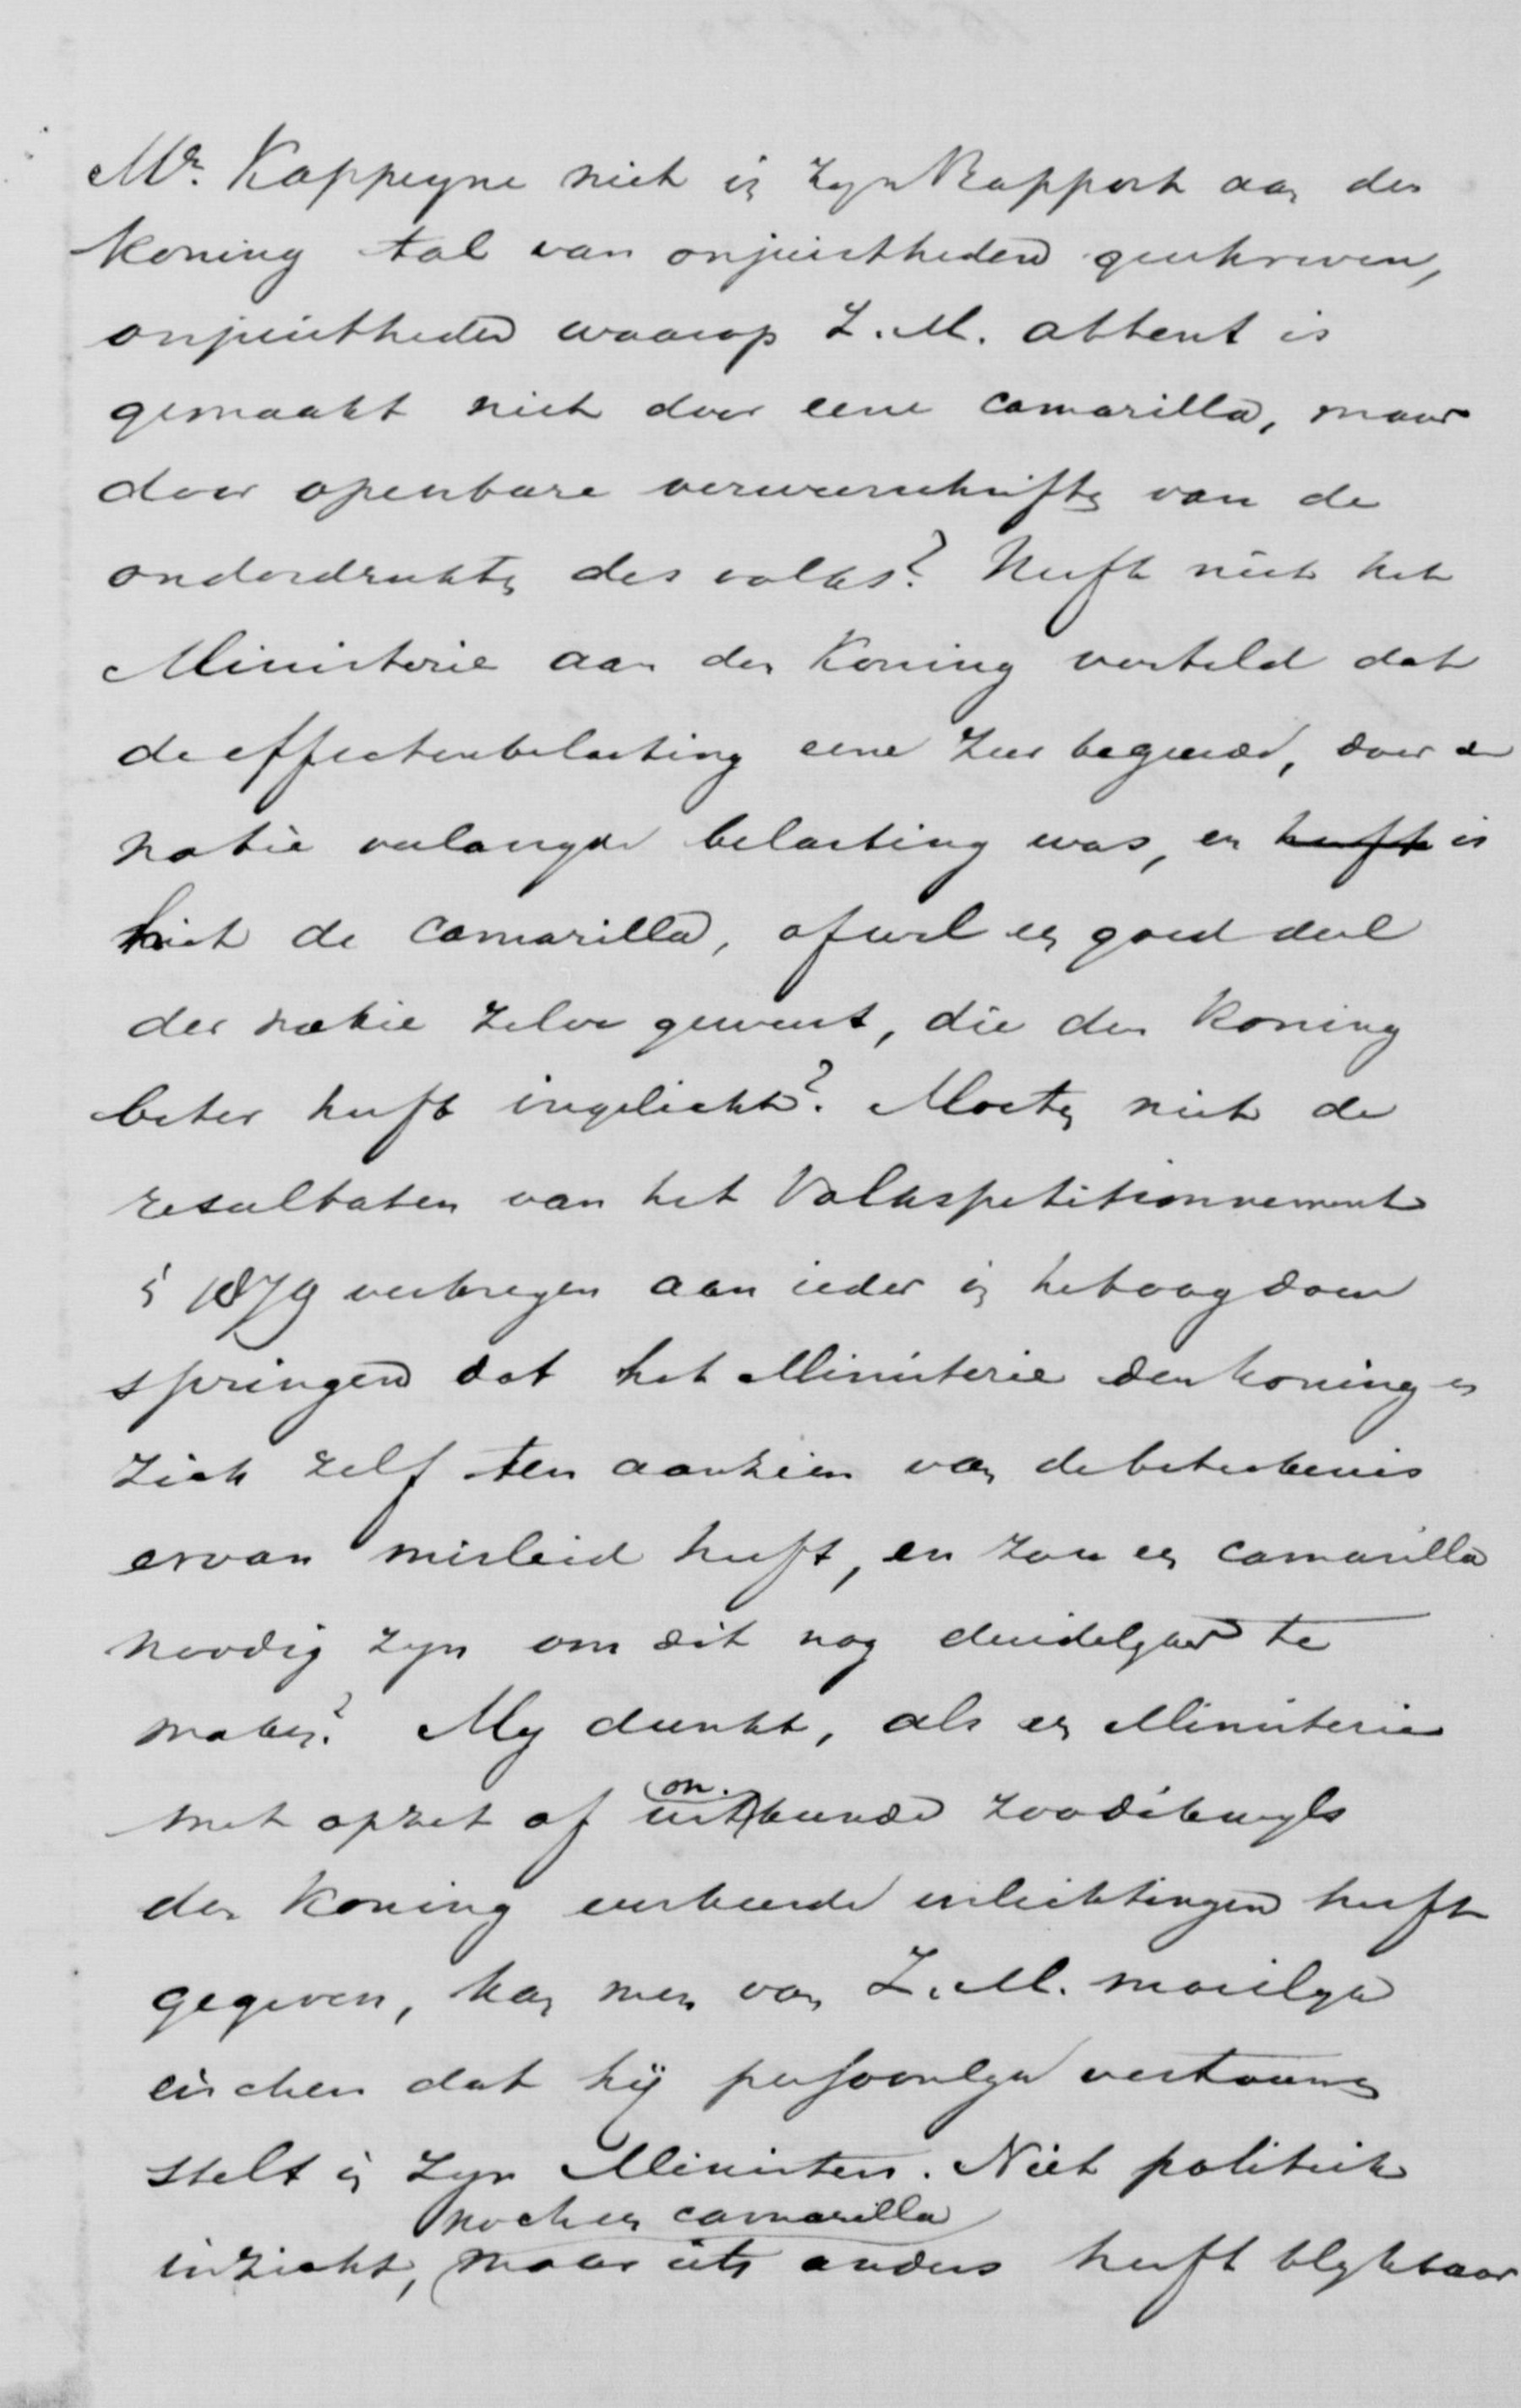 Mr. Kappeyne niet in zyn Rapport aan den
Koning tal van onjuistheden geschreven,
onjuistheden waarop Z. M. attent is
gemaakt niet door eene camarilla, maar
door openbare verweerschriften van de
onderdrukten des volks? Heeft niet het
Ministerie aan den Koning verteld dat
de effectenbelasting eene zeer begeerde, door de
natie verlangde belasting was, en heeft is
niet de camarilla, ofwel een goed deel
der natie zelve geweest, die den Koning
beter heeft ingelicht? Moeten niet de
resultaten van het Volkspetitionnement
in 1879 verkregen aan ieder in het oog doen
springen dat het Ministerie den koning en
zich zelf ten aanzien van de beteekenis
ervan misleid heeft, en zou een camarilla
noodig zyn om dit nog duidelyker te
maken? My dunkt, als een Ministerie
on.
met opzet of uit kunde zoodikwyls
den Koning verkeerde inlichtingen heeft
gegeven, kan men van Z. M. moeilyk
eischen dat hij persoonlyk vertrouwen
stelt in zyn Ministers. Niet politiek
noch een camarilla
inzicht, maar iets anders heeft blykbaar